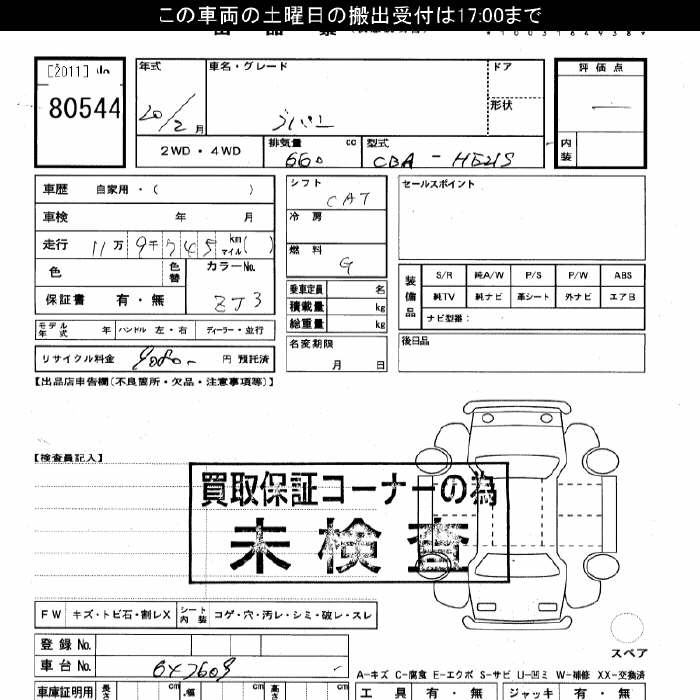 この車両の土曜日の搬出受付は17:00まで
[2011]
80544
年式
車名・グレード
ドア
評価点
20/2月
ラパン
形状
2WD・4WD
排気量
660
cc
型式
CBA-HE21S
内装
車歴 自家用・( )
シフト
CAT
セールスポイント
車検 年 月
冷房
走行 11万9千745km マイル( )
燃料
G
色 色替
カラーNo.
ZJ3
保証書 有・無
乗車定員 名
積載量 kg
総重量 kg
装備品
S/R 純A/W P/S P/W ABS
純TV 純ナビ 革シート 外ナビ エアB
ナビ型番:
モデル年式 年 ハンドル 左・右 ディーラー・並行
名変期限
月 日
後日品
リサイクル料金 円 預託済
【出品店申告欄(不良箇所・欠品・注意事項等)】
【検査員記入】
買取保証コーナーの為
未検査
FW キズ・トビ石・割レX シート内装 コゲ・穴・汚レ・シミ・破レ・スレ
スペア
登録No.
車台No.
A-キズ C-腐食 E-エクボ S-サビ U-凹ミ W-補修 XX-交換済
車庫証明用 長さ cm 幅 cm 高さ cm
工具 有・無 ジャッキ 有・無